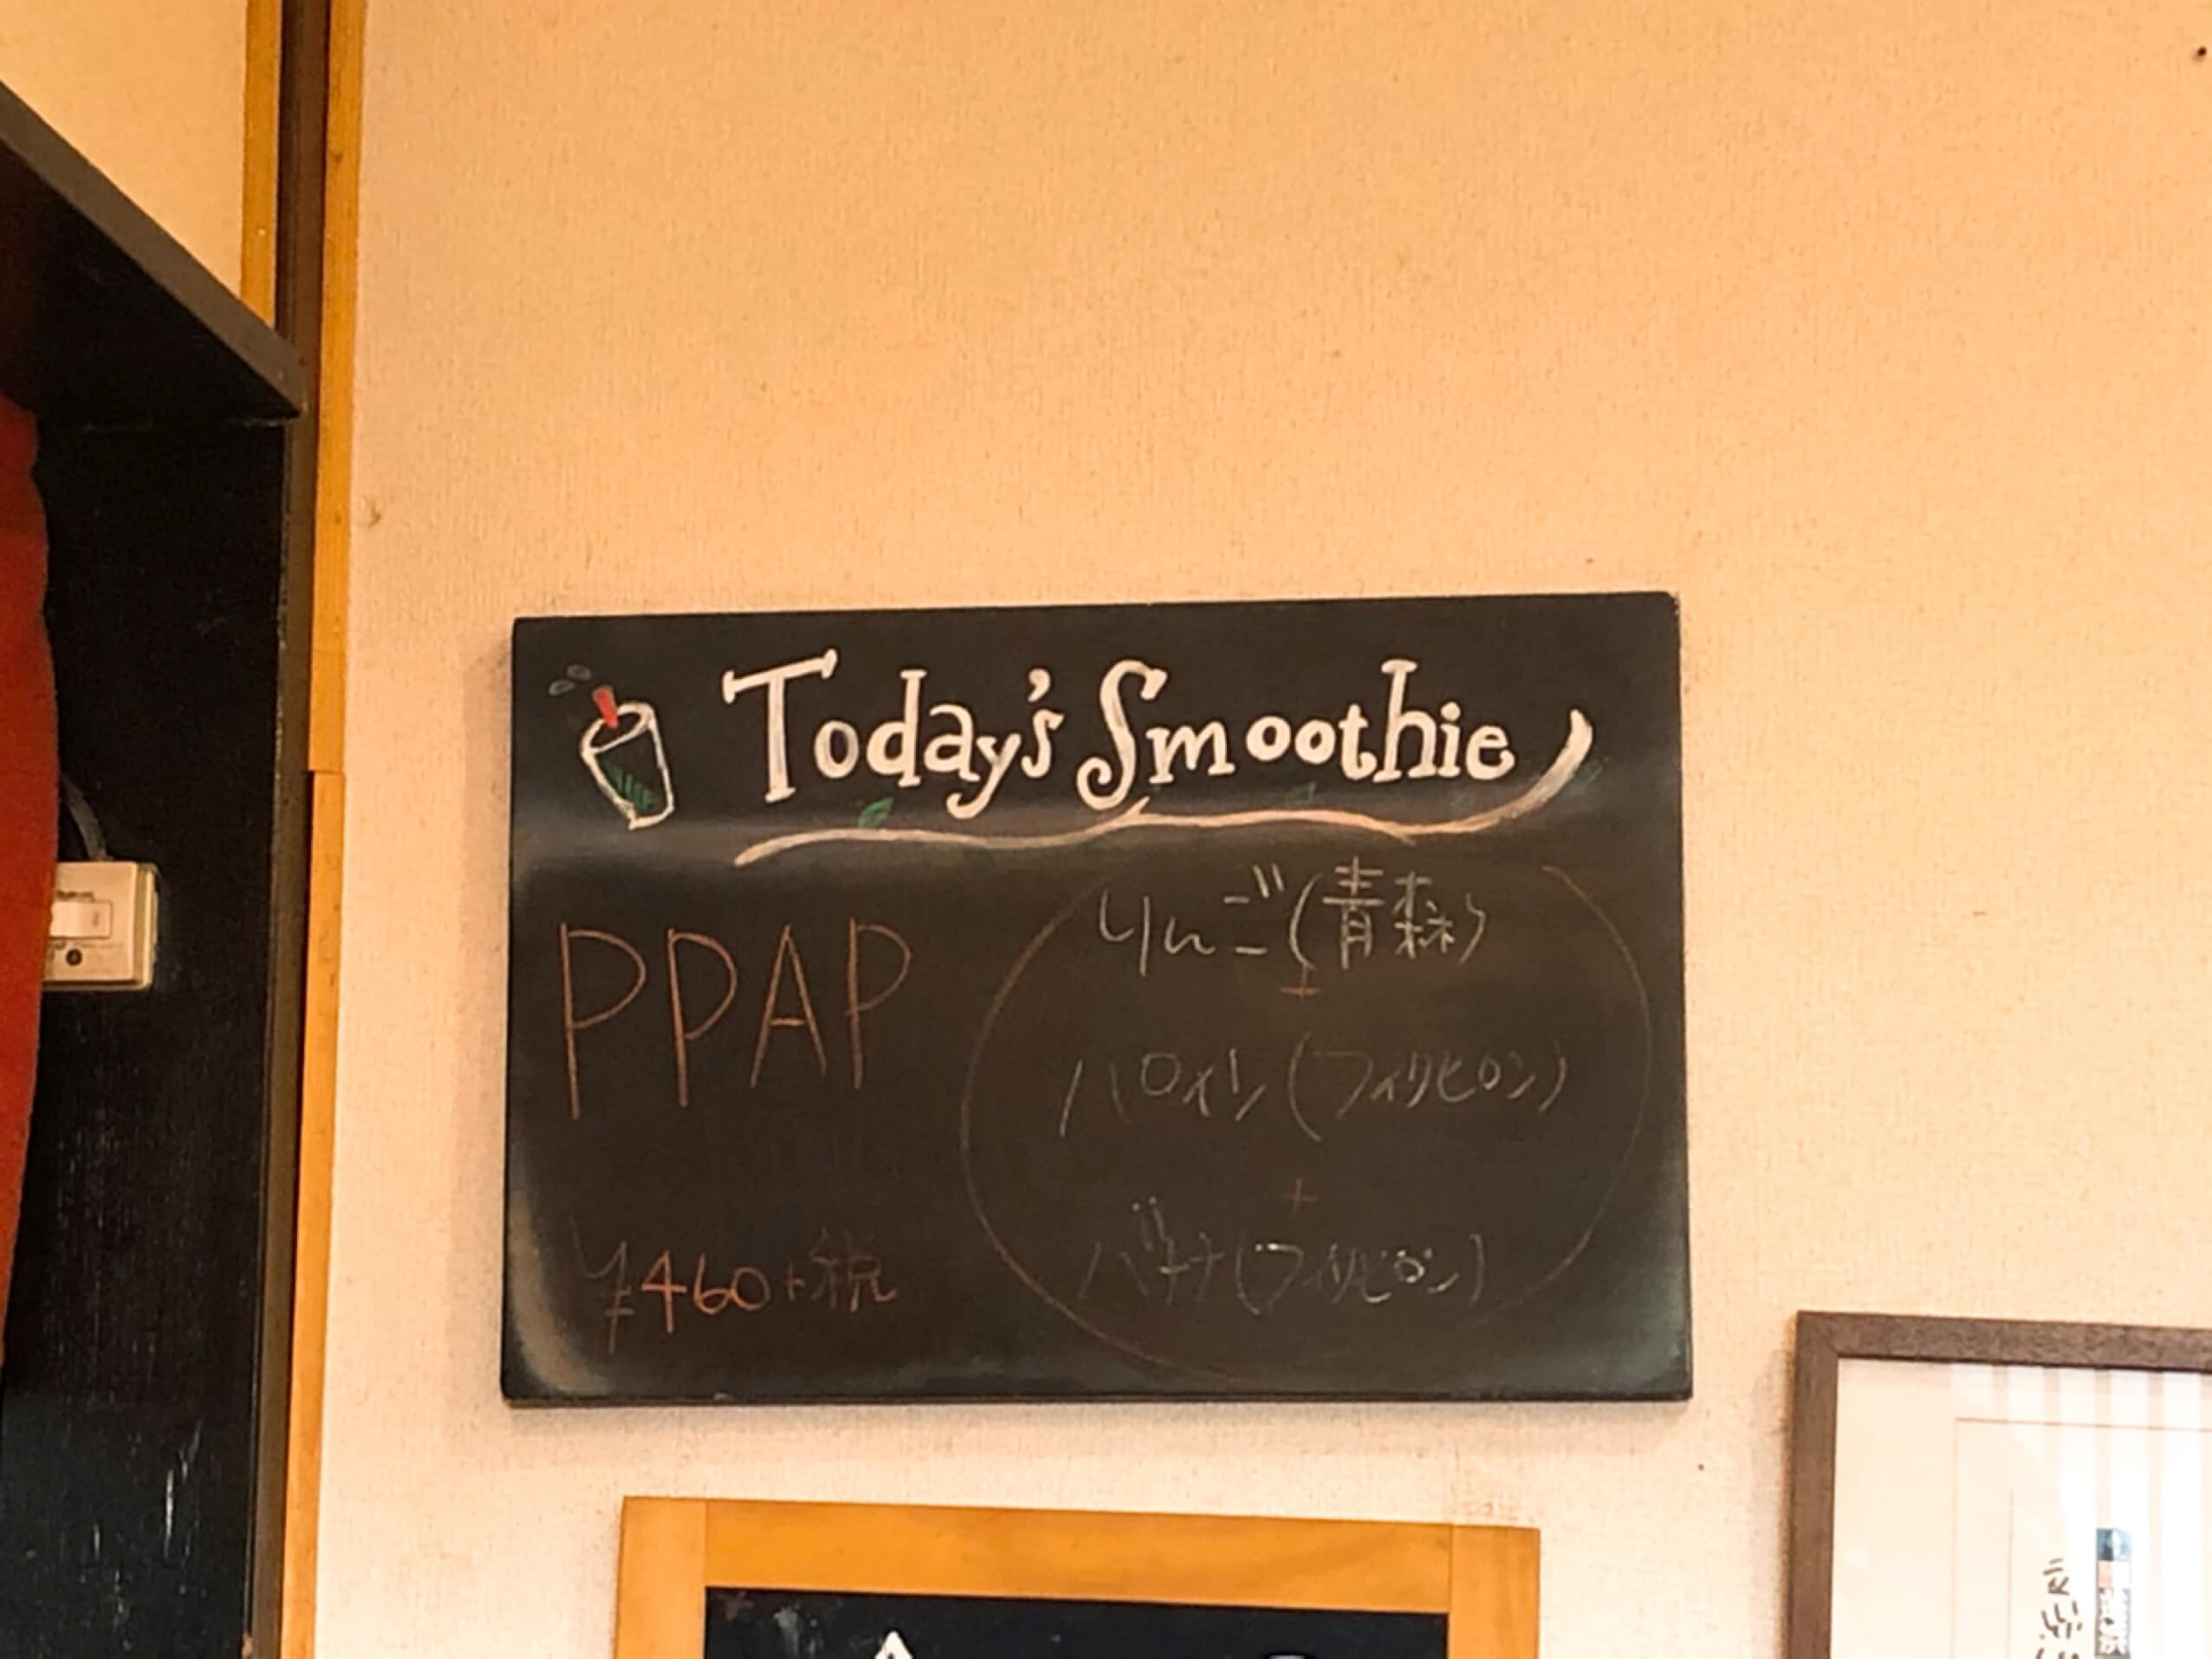 Today's Smoothie
PPAP
¥460+税
りんご(青森)
+
パイン(フィリピン)
+
バナナ(フィリピン)